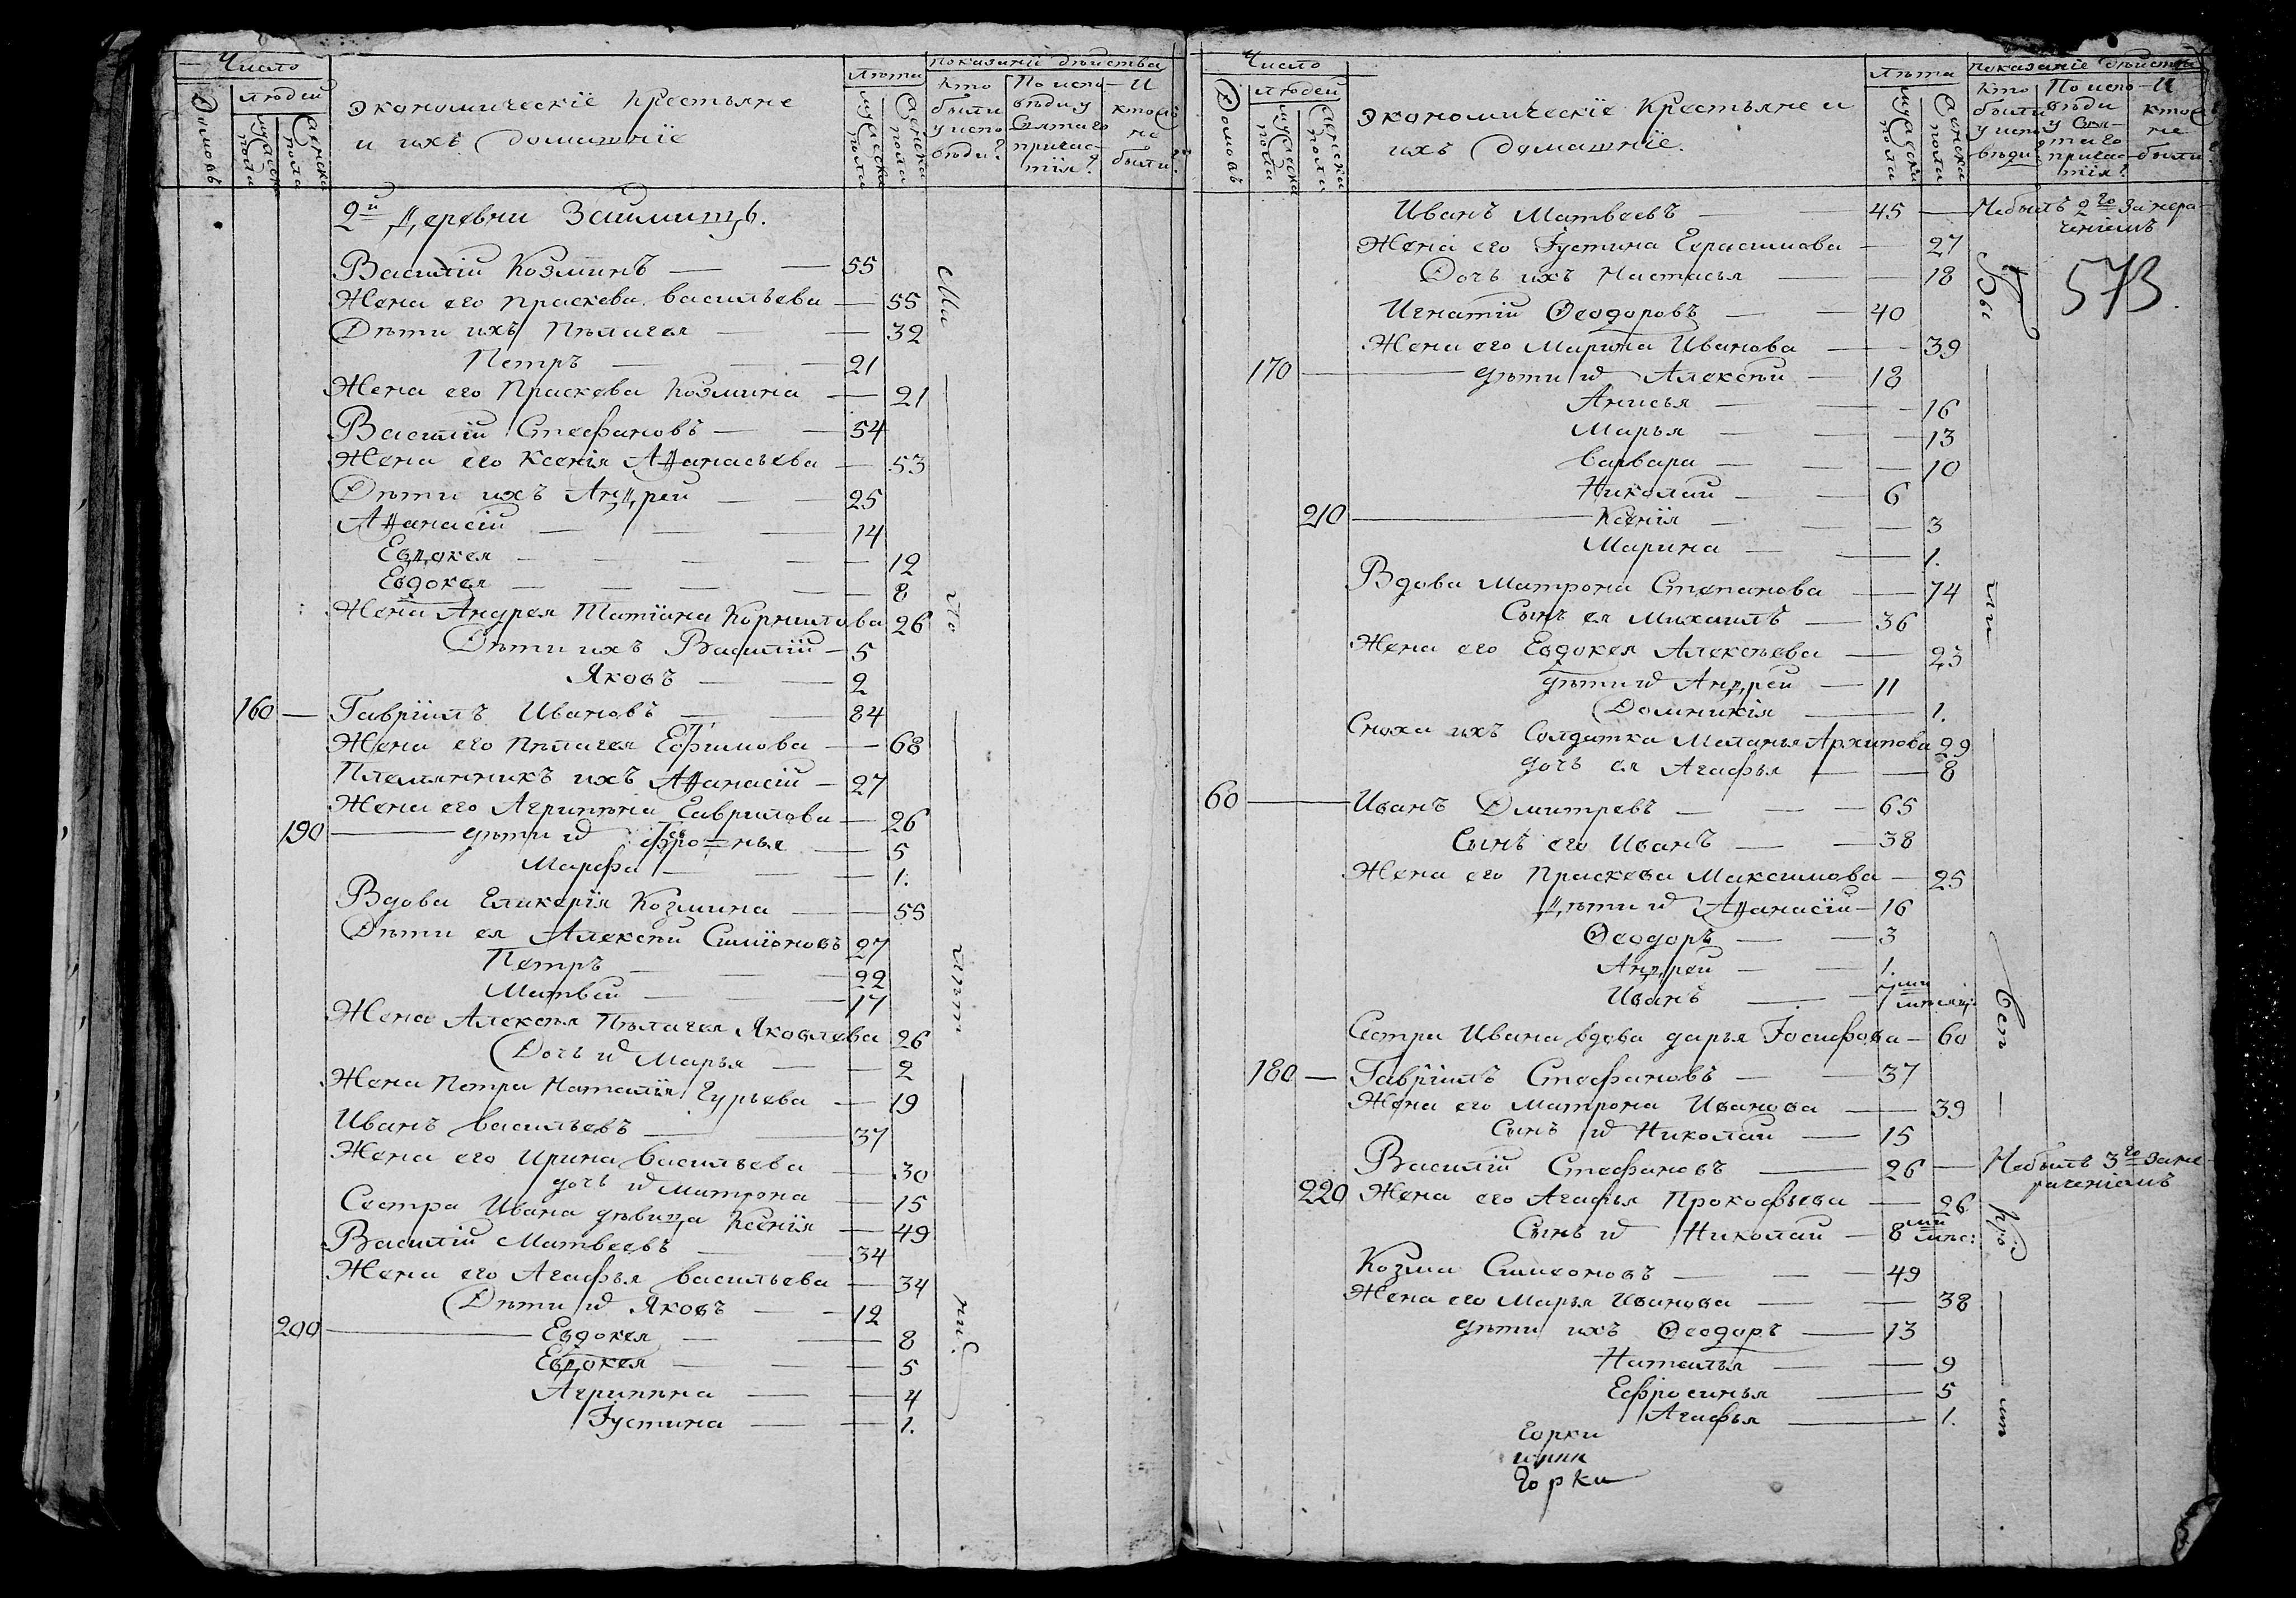 Число
Домовъ
людей
мужеска пола
женска пола
Экономическіе Крестьяне
и ихъ Домашніе
лѣта
мужеска пола
женска пола
Показаніе дѣйства
Кто были у исповѣди?
По исповѣди у Святаго причастія?
И кто не были?
2й Деревни Займищь.
Василій Козминъ — 55
Жена его Праскева Васильева — 55
Дѣти ихъ Пѣлагея — 32
Петръ — 21
Жена его Праскева Козмина — 21
Василій Стефановъ — 54
Жена его Ксенія Аѳанасьева — 53
Дѣти ихъ Андрей — 25
Аѳанасій — 14
Евдокея — 12
Евдокея — 8
Жена Андрея Татіана Корнилова 26
Дѣти ихъ Василій — 5
Яковъ — 2
160 — Гавріилъ Ивановъ — 84
Жена его Пѣлагея Ефимова — 68
Племянникъ ихъ Аѳанасій — 27
Жена его Агрипѣна Гаврилова — 26
190 — дѣти их 5
Марфа — 1.
Вдова Гликерія Козмина — 55
Дѣти ея Алексѣй Симіоновъ 27
Петръ — 22
Матвей — 17
Жена Алексѣя Пѣлагея Яковлева 26
Дочь их Марья — 2
Жена Петра Наталія Гурьева — 19
Иванъ Васильевъ — 37
Жена его Ирина Васильева — 30
дочь их Матрона — 15
Сестра Ивана дѣвица Ксенія — 49
Василій Матвеевъ — 34
Жена его Агафья Васильева — 34
Дѣти их Яковъ — 12
200 — Евдокея — 8
Евдокея — 5
Агрипѣна — 4
Іустина — 1.
Число
Домовъ
людей
мужеска пола
женска пола
Экономическіе Крестьяне и
ихъ Домашніе.
лѣта
мужеска пола
женска пола
Показаніе дѣйства
Кто были у исповѣди?
По исповѣди у Святаго причастія?
И кто не были?
Иванъ Матвеевъ — 45 — Небылъ 2го занера-
ченіемъ
Жена его Іустина Герасимова — 27
Дочь ихъ Настасья — 18
573
Игнатій Ѳеодоровъ — 40
Жена его Марина Иванова — 39
170 — дѣти их Алексѣй — 18
Анисья — 16
Марья — 13
Варвара — 10
Николай — 6
210 — Ксенія — 3
Марина — 1.
Вдова Матрона Степанова — 74
Сынъ ея Михаилъ — 36
Жена его Евдокея Алексѣева — 23
дѣти их Андрей — 11
Домникія — 1.
Сноха ихъ Солдатка Меланья Архипова 29
дочь ея Агафья — 8
60 — Иванъ Дмитревъ — 65
Сынъ его Иванъ — 38
Жена его Праскева Максимова — 25
Дѣти их Аѳанасій — 16
Ѳеодоръ — 3
Андрей — 1.
Иванъ — 7ми мѣсяц:
Сестра Ивана вдова дарья Іосифова — 60
180 — Гавріилъ Стефановъ — 37
Жена его Матрона Иванова — 39
Сынъ их Николай — 15
Василій Стефановъ — 26 — Небылъ 3го зане-
раченіемъ
220 Жена его Агафья Прокофьева — 26
Сынъ их Николай — 8ми мѣс:
Козма Симеоновъ — 49
Жена его Марья Иванова — 38
дѣти ихъ Ѳеодоръ — 13
Наталья — 9
Ефросинья — 5
Агафья — 1.
Горки
Горки